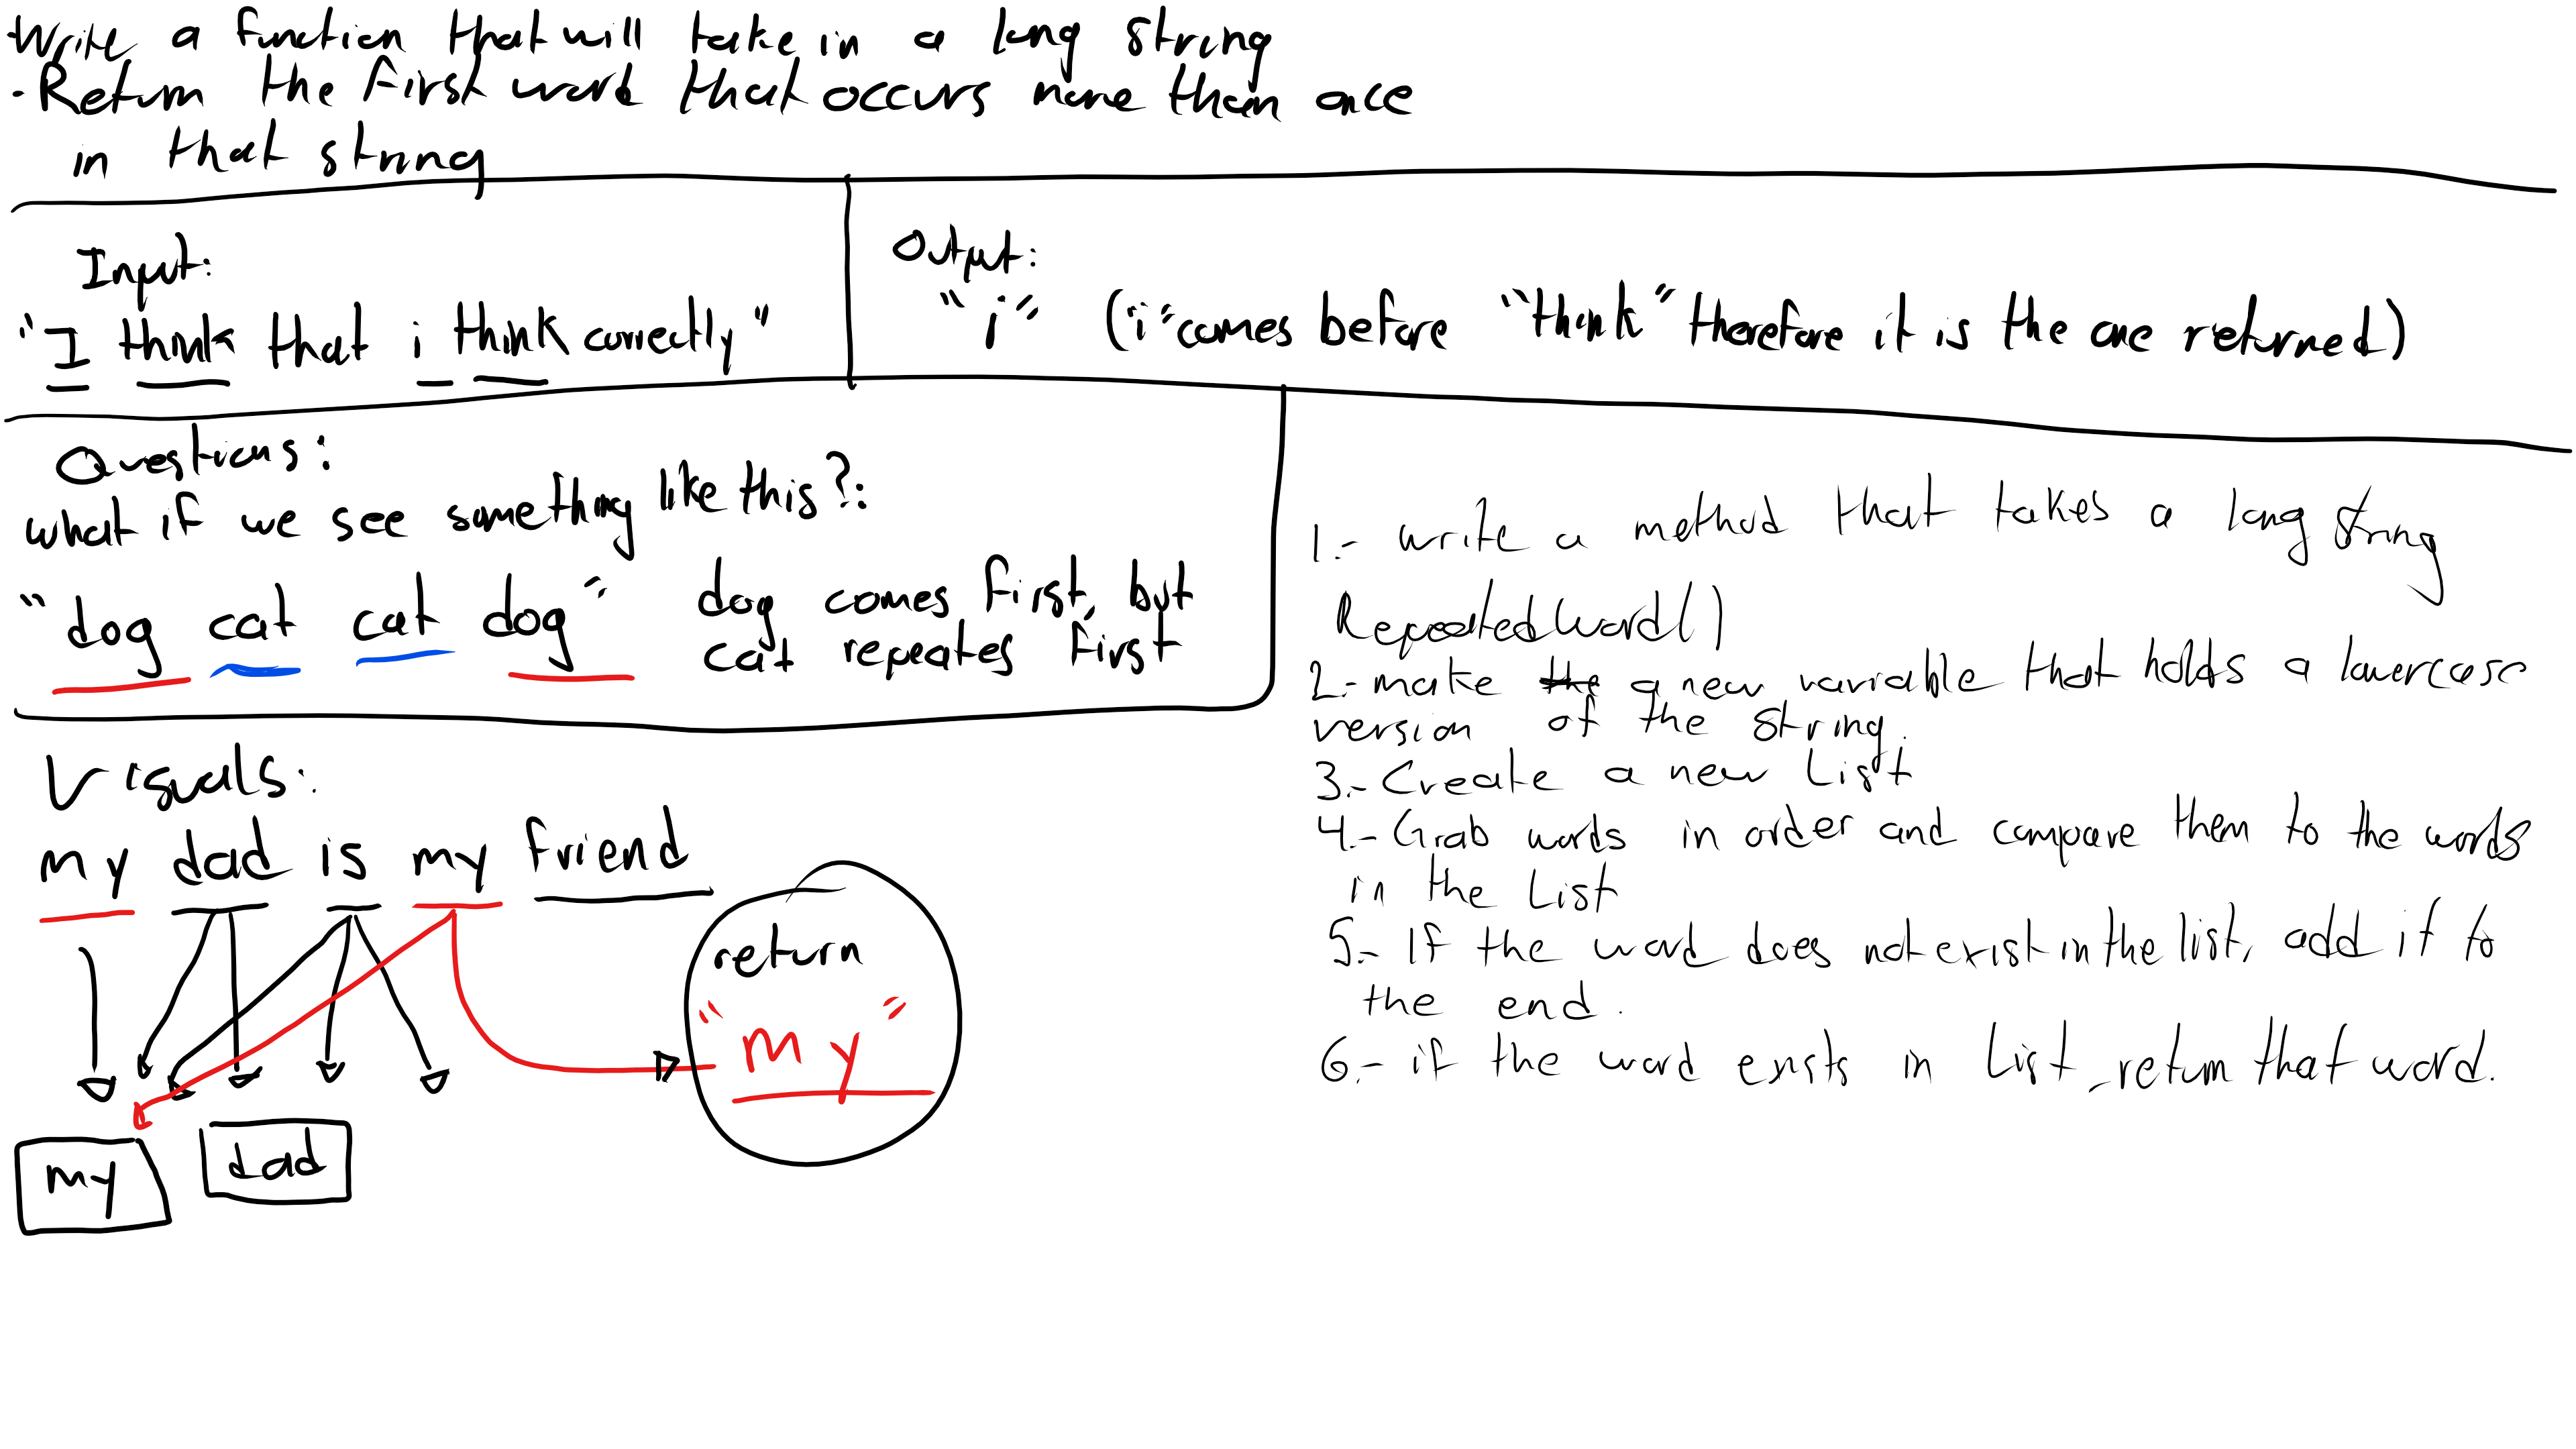 -Write a function that will take in a long string
-Return the first word that occurs more than once
in that string
Input:
"I think that i think correctly"
Output:
"i" ("i" comes before "think" therefore it is the one returned)
Questions:
what if we see something like this?:
"dog cat cat dog"
dog comes first, but
cat repeates first
Visuals:
my dad is my friend
return
"my"
my
dad
1.- write a method that takes a long string
RepeatedWord()
2.- make the a new variable that holds a lowercase
version of the string.
3.- Create a new List
4.- Grab words in order and compare them to the words
in the List
5.- If the word does not exist in the list, add it to
the end.
6.- if the word exists in List, return that word.